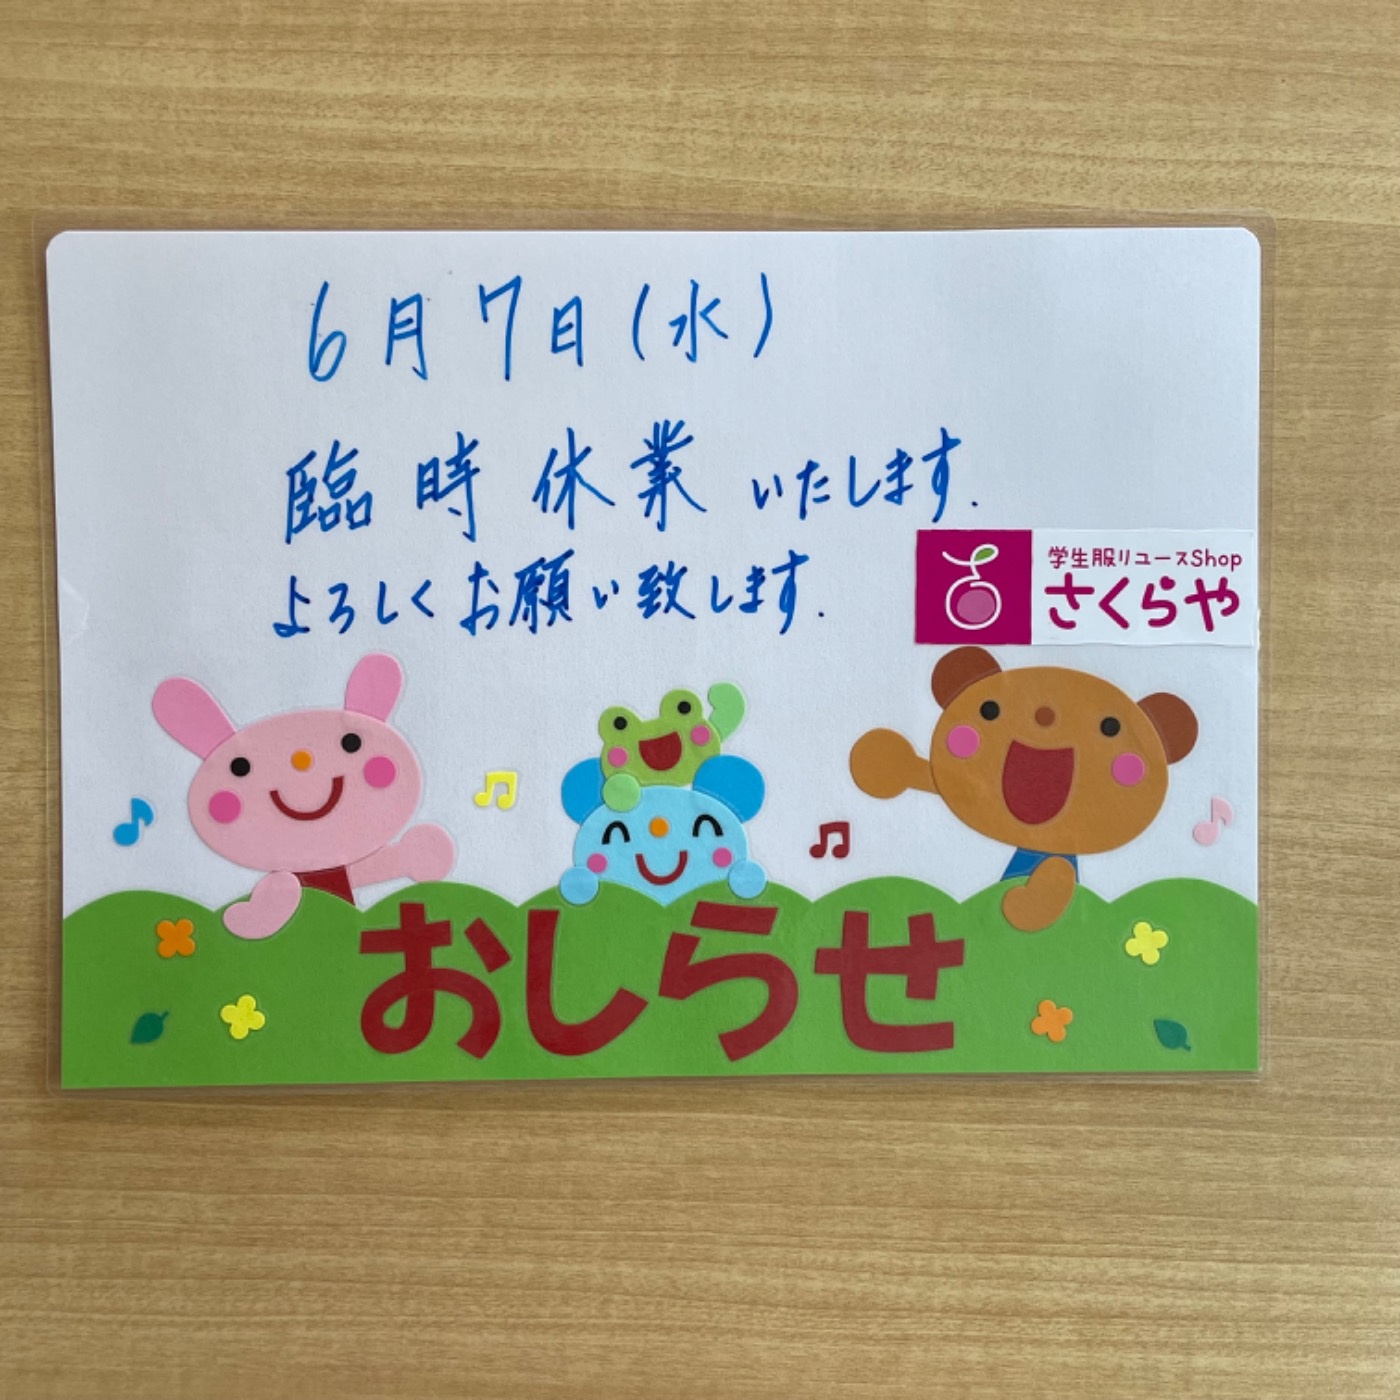 6月7日(水)
臨時休業いたします.
よろしくお願い致します.
学生服リユースShop
さくらや
おしらせ